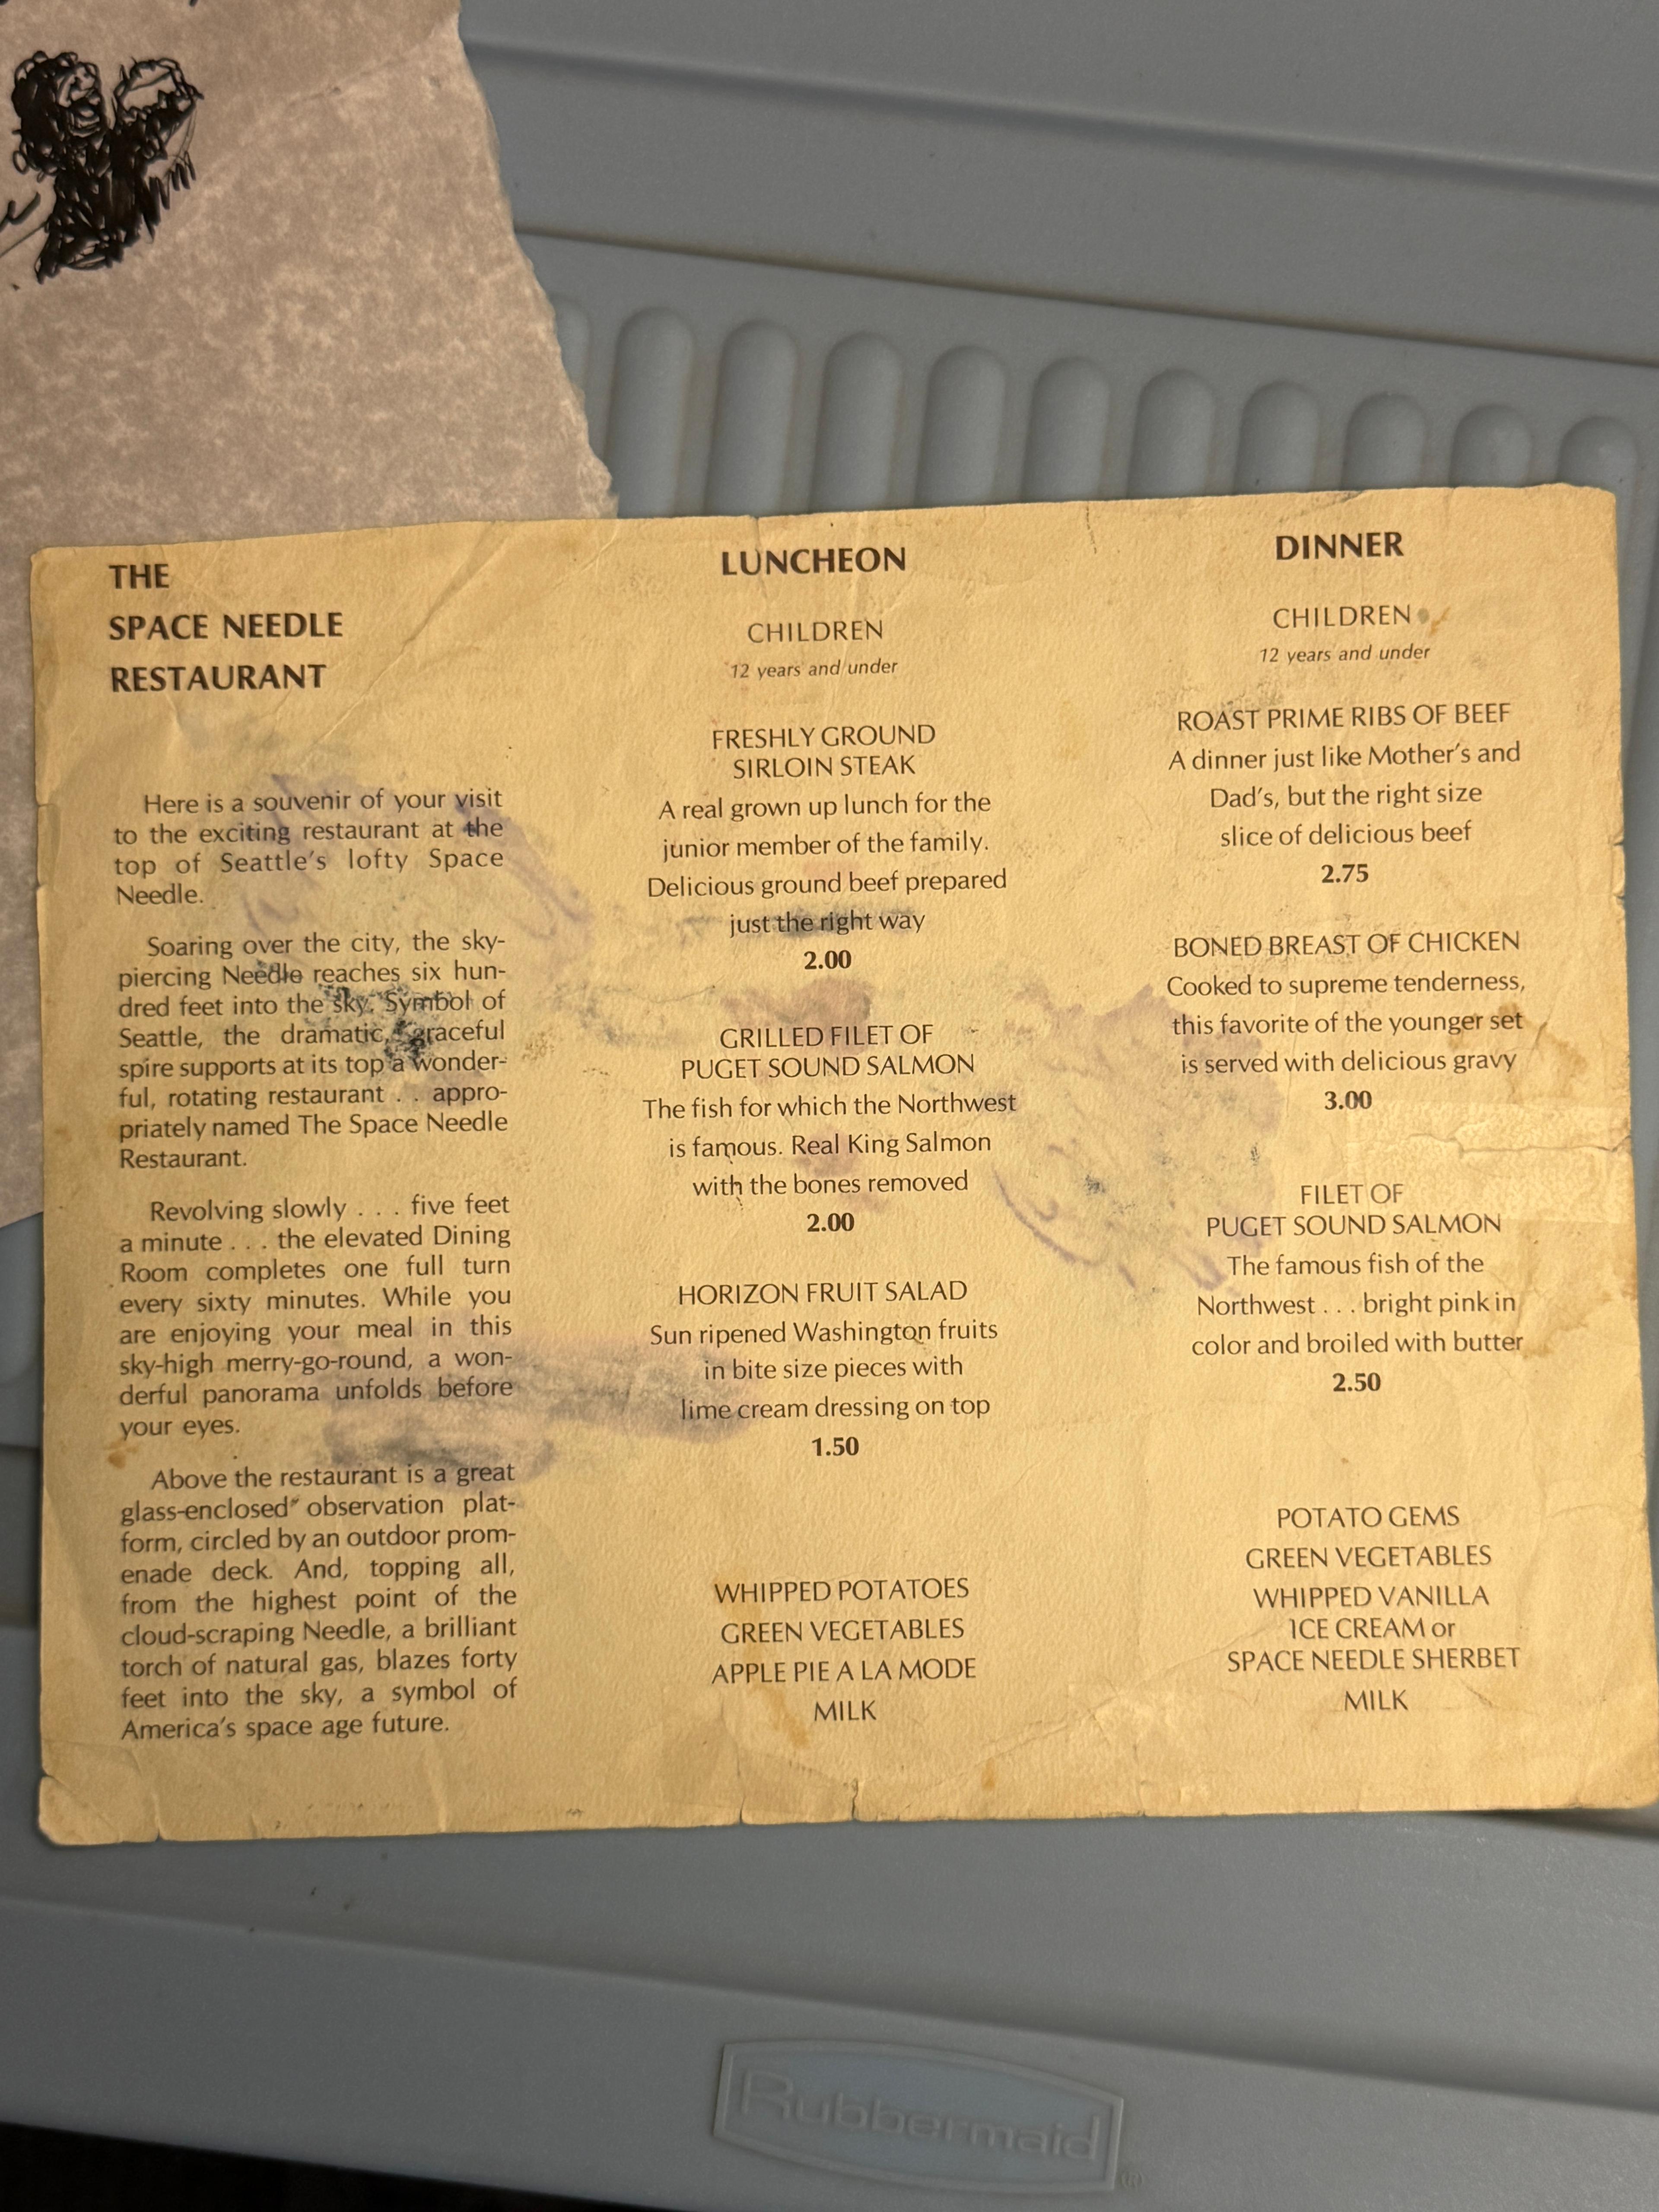 THE
SPACE NEEDLE
RESTAURANT
Here is a souvenir of your visit
to the exciting restaurant at the
top of Seattle's lofty Space
Needle.
Soaring over the city, the sky-
piercing Needle reaches six hun-
dred feet into the sky. Symbol of
Seattle, the dramatic, graceful
spire supports at its top a wonder-
ful, rotating restaurant . . appro-
priately named The Space Needle
Restaurant.
Revolving slowly . . . five feet
a minute . . . the elevated Dining
Room completes one full turn
every sixty minutes. While you
are enjoying your meal in this
sky-high merry-go-round, a won-
derful panorama unfolds before
your eyes.
Above the restaurant is a great
glass-enclosed observation plat-
form, circled by an outdoor prom-
enade deck. And, topping all,
from the highest point of the
cloud-scraping Needle, a brilliant
torch of natural gas, blazes forty
feet into the sky, a symbol of
America's space age future.
LUNCHEON
CHILDREN
12 years and under
FRESHLY GROUND
SIRLOIN STEAK
A real grown up lunch for the
junior member of the family.
Delicious ground beef prepared
just the right way
2.00
GRILLED FILET OF
PUGET SOUND SALMON
The fish for which the Northwest
is famous. Real King Salmon
with the bones removed
2.00
HORIZON FRUIT SALAD
Sun ripened Washington fruits
in bite size pieces with
lime cream dressing on top
1.50
WHIPPED POTATOES
GREEN VEGETABLES
APPLE PIE A LA MODE
MILK
DINNER
CHILDREN
12 years and under
ROAST PRIME RIBS OF BEEF
A dinner just like Mother's and
Dad's, but the right size
slice of delicious beef
2.75
BONED BREAST OF CHICKEN
Cooked to supreme tenderness,
this favorite of the younger set
is served with delicious gravy
3.00
FILET OF
PUGET SOUND SALMON
The famous fish of the
Northwest . . . bright pink in
color and broiled with butter
2.50
POTATO GEMS
GREEN VEGETABLES
WHIPPED VANILLA
ICE CREAM or
SPACE NEEDLE SHERBET
MILK
Rubbermaid